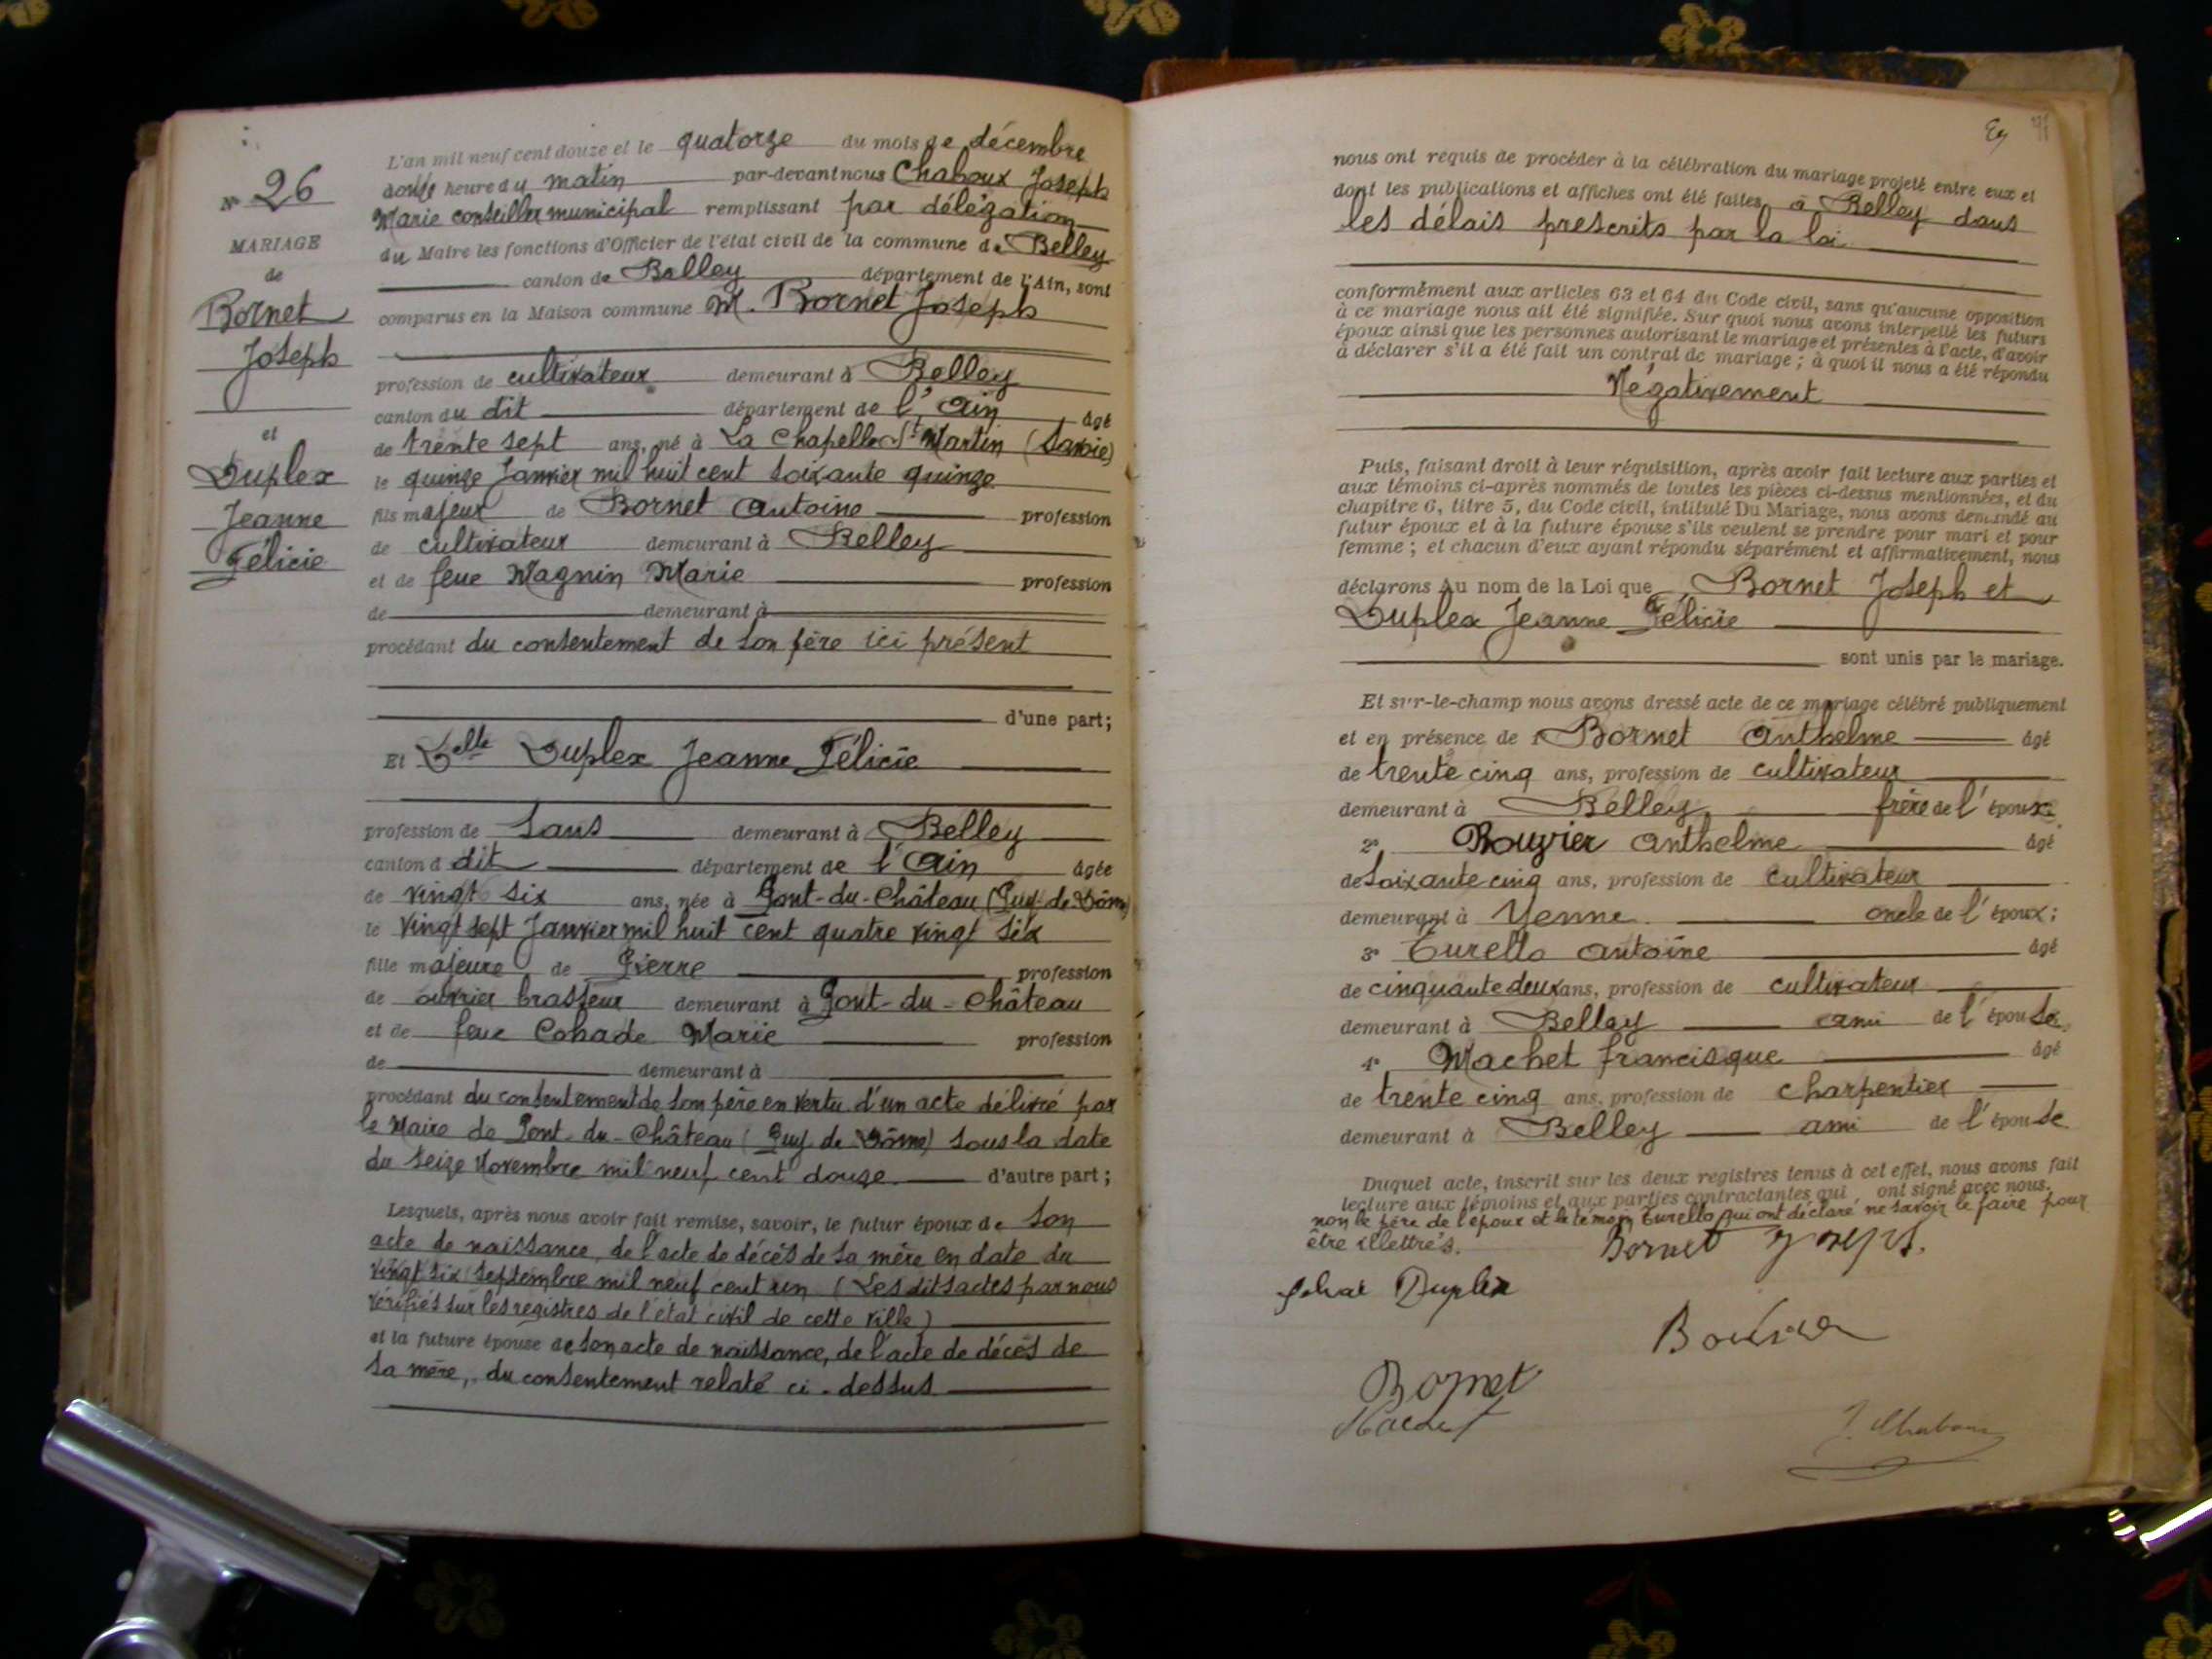 N° 26
MARIAGE
de
Bornet
Joseph
et
Duplex
Jeanne
Félicie
L'an mil neuf cent douze et le quatorze du mois de décembre
heure du matin par-devant nous Chaboux Joseph
Marie conseiller municipal remplissant par délégation
du Maire les fonctions d'Officier de l'état civil de la commune de Belley
canton de Belley département de l'Ain, sont
comparus en la Maison commune M. Bornet Joseph
profession de cultivateur demeurant à Belley
canton du dit département de l'Ain âgé
de trente sept ans, né à La Chapelle St Martin (Savoie)
le quinze Janvier mil huit cent soixante quinze
fils majeur de Bornet Antoine profession
de cultivateur demeurant à Belley
et de feue Magnin Marie profession
de demeurant à
procédant du consentement de son père ici présent
d'une part;
Et Delle Duplex Jeanne Félicie
profession de Sans demeurant à Belley
canton d dit département de l'Ain âgée
de vingt six ans, née à Pont-du-Château (Puy-de-Dôme)
le vingt sept Janvier mil huit cent quatre vingt six
fille majeure de Pierre profession
de ouvrier brasseur demeurant à Pont-du-Château
et de feue Cohade Marie profession
de demeurant à
procédant du consentement de son père en vertu d'un acte délivré par
le Maire de Pont-du-Château (Puy-de-Dôme) sous la date
du seize Novembre mil neuf cent douze d'autre part;
Lesquels, après nous avoir fait remise, savoir, le futur époux de son
acte de naissance, de l'acte de décès de sa mère en date du
vingt six septembre mil neuf cent un (Les dits actes par nous
vérifiés sur les registres de l'état civil de cette ville)
et la future épouse de son acte de naissance, de l'acte de décès de
sa mère, du consentement relaté ci-dessus
nous ont requis de procéder à la célébration du mariage projeté entre eux et
dont les publications et affiches ont été faites à Belley dans
les délais prescrits par la loi
conformément aux articles 63 et 64 du Code civil, sans qu'aucune opposition
à ce mariage nous ait été signifiée. Sur quoi nous avons interpellé les futurs
époux ainsi que les personnes autorisant le mariage et présentes à l'acte, d'avoir
à déclarer s'il a été fait un contrat de mariage; à quoi il nous a été répondu
Négativement
Puis, faisant droit à leur réquisition, après avoir fait lecture aux parties et
aux témoins ci-après nommés de toutes les pièces ci-dessus mentionnées, et du
chapitre 6, titre 5, du Code civil, intitulé Du Mariage, nous avons demandé au
futur époux et à la future épouse s'ils veulent se prendre pour mari et pour
femme; et chacun d'eux ayant répondu séparément et affirmativement, nous
déclarons Au nom de la Loi que Bornet Joseph et
Duplex Jeanne Félicie
sont unis par le mariage.
Et sur-le-champ nous avons dressé acte de ce mariage célébré publiquement
et en présence de 1° Bornet Anthelme âgé
de trente cinq ans, profession de cultivateur
demeurant à Belley frère de l'époux
2° Bouvier Anthelme âgé
de soixante cinq ans, profession de cultivateur
demeurant à Yenne oncle de l'époux;
3° Turello Antoine âgé
de cinquante deux ans, profession de cultivateur
demeurant à Belley ami de l'épouse
4° Machet Francisque âgé
de trente cinq ans, profession de charpentier
demeurant à Belley ami de l'épouse
Duquel acte, inscrit sur les deux registres tenus à cet effet, nous avons fait
lecture aux témoins et aux parties contractantes qui, ont signé avec nous.
non le père de l'époux et le témoin Turello qui ont déclaré ne savoir le faire pour
être illettrés.
Bornet Joseph
Duplex
Bouvier
Bornet
Machet
J. Chaboux